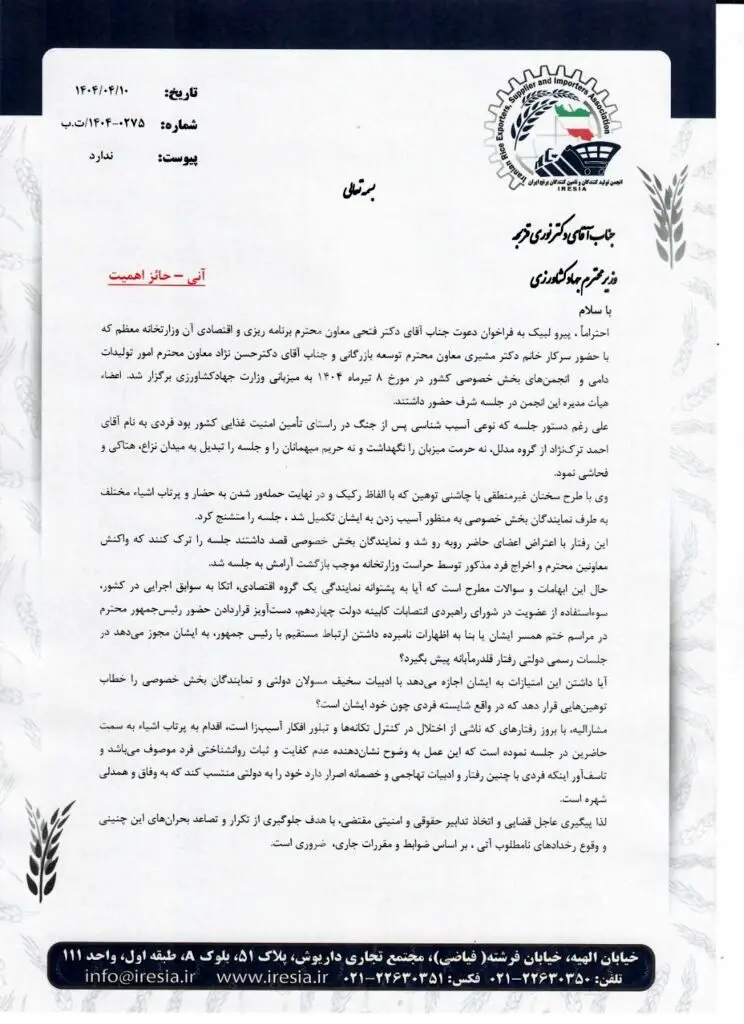 Iranian Rice Exporters, Supplier and Importers Association
انجمن تولید کنندگان و تامین کنندگان برنج ایران
IRESIA
تاریخ: ۱۴۰۴/۰۴/۱۰
شماره: ۱۴۰۴-۰۲۷۵/ت.ب
پیوست: ندارد
بسمه تعالی
جناب آقای دکتر نوری قزلجه
وزیر محترم جهاد کشاورزی
آنی – حائز اهمیت
با سلام
احتراماً ، پیرو لبیک به فراخوان دعوت جناب آقای دکتر فتحی معاون محترم برنامه ریزی و اقتصادی آن وزارتخانه معظم که
با حضور سرکار خانم دکتر مشیری معاون محترم توسعه بازرگانی و جناب آقای دکترحسن نژاد معاون محترم امور تولیدات
دامی و انجمن‌های بخش خصوصی کشور در مورخ ۸ تیرماه ۱۴۰۴ به میزبانی وزارت جهادکشاورزی برگزار شد. اعضاء
هیأت مدیره این انجمن در جلسه شرف حضور داشتند.
علی رغم دستور جلسه که نوعی آسیب شناسی پس از جنگ در راستای تأمین امنیت غذایی کشور بود فردی به نام آقای
احمد ترک‌نژاد از گروه مدلل، نه حرمت میزبان را نگهداشت و نه حریم میهمانان را و جلسه را تبدیل به میدان نزاع، هتاکی و
فحاشی نمود.
وی با طرح سخنان غیرمنطقی با چاشنی توهین که با الفاظ رکیک و در نهایت حمله‌ور شدن به حضار و پرتاب اشیاء مختلف
به طرف نمایندگان بخش خصوصی به منظور آسیب زدن به ایشان تکمیل شد ، جلسه را متشنج کرد.
این رفتار با اعتراض اعضای حاضر روبه رو شد و نمایندگان بخش خصوصی قصد داشتند جلسه را ترک کنند که واکنش
معاونین محترم و اخراج فرد مذکور توسط حراست وزارتخانه موجب بازگشت آرامش به جلسه شد.
حال این ابهامات و سوالات مطرح است که آیا به پشتوانه نمایندگی یک گروه اقتصادی، اتکا به سوابق اجرایی در کشور،
سوءاستفاده از عضویت در شورای راهبردی انتصابات کابینه دولت چهاردهم، دست‌آویز قراردادن حضور رئیس‌جمهور محترم
در مراسم ختم همسر ایشان یا بنا به اظهارات نامبرده داشتن ارتباط مستقیم با رئیس جمهور، به ایشان مجوز می‌دهد در
جلسات رسمی دولتی رفتار قلدرمآبانه پیش بگیرد؟
آیا داشتن این امتیازات به ایشان اجازه می‌دهد با ادبیات سخیف مسولان دولتی و نمایندگان بخش خصوصی را خطاب
توهین‌هایی قرار دهد که در واقع شایسته فردی چون خود ایشان است؟
مشارالیه، با بروز رفتارهای که ناشی از اختلال در کنترل تکانه‌ها و تبلور افکار آسیب‌زا است، اقدام به پرتاب اشیاء به سمت
حاضرین در جلسه نموده است که این عمل به وضوح نشان‌دهنده عدم کفایت و ثبات روانشناختی فرد موصوف می‌باشد و
تاسف‌آور اینکه فردی با چنین رفتار و ادبیات تهاجمی و خصمانه اصرار دارد خود را به دولتی منتسب کند که به وفاق و همدلی
شهره است.
لذا پیگیری عاجل قضایی و اتخاذ تدابیر حقوقی و امنیتی مقتضی، با هدف جلوگیری از تکرار و تصاعد بحران‌های این چنینی
و وقوع رخدادهای نامطلوب آتی ، بر اساس ضوابط و مقررات جاری، ضروری است.
خیابان الهیه، خیابان فرشته( فیاضی)، مجتمع تجاری داریوش، پلاک ۵۱، بلوک A، طبقه اول، واحد ۱۱۱
تلفن: ۲۲۶۳۰۳۵۰-۰۲۱ فکس: ۲۲۶۳۰۳۵۱-۰۲۱ www.iresia.ir info@iresia.ir